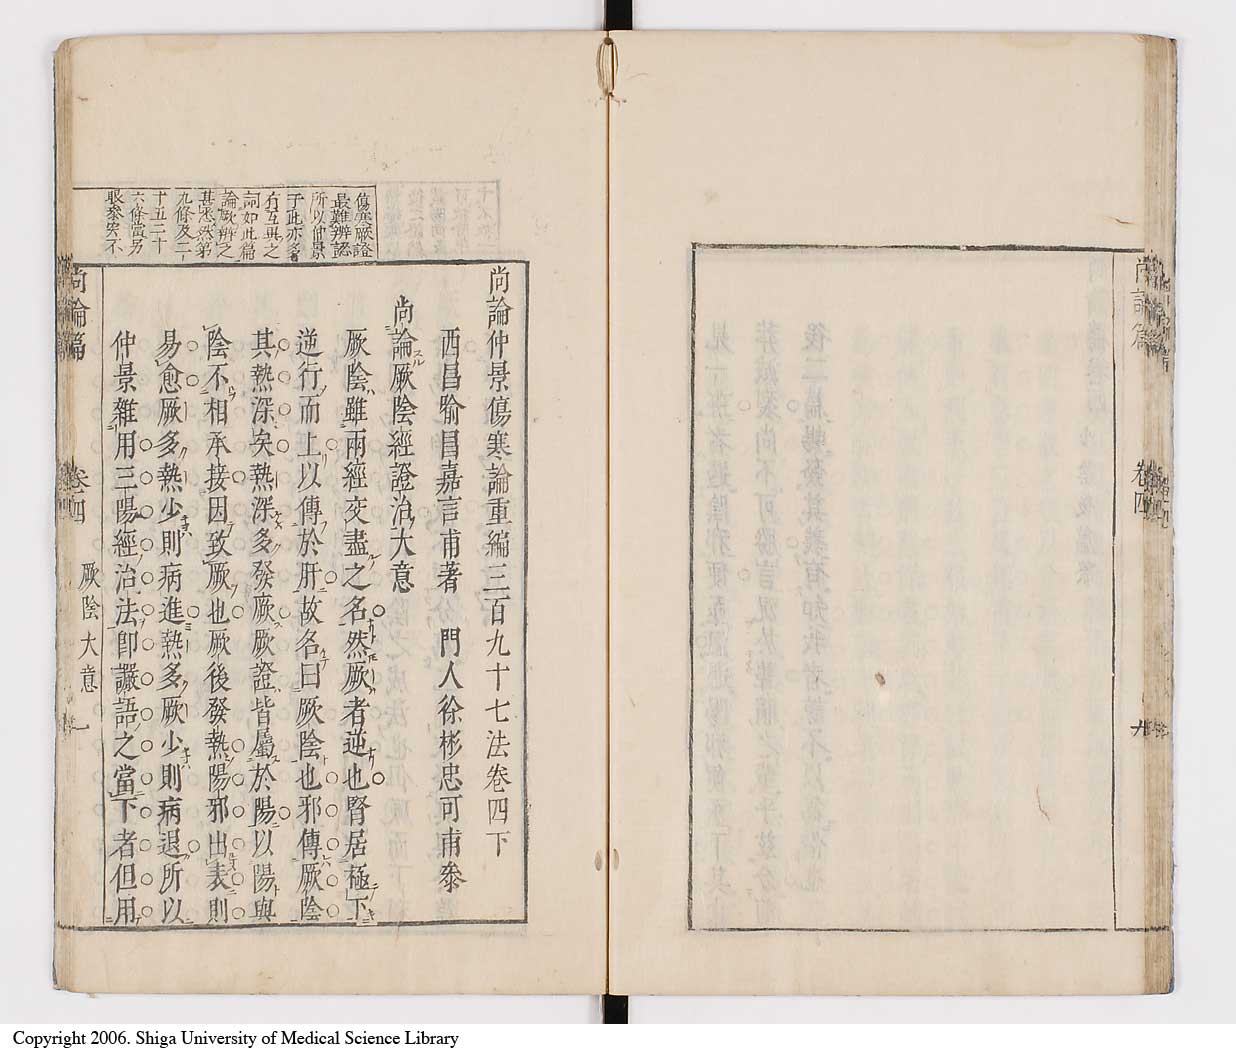 尚論篇
卷四
尚論仲景傷寒論重編三百九十七法卷四下
西昌喻昌嘉言甫著　門人徐彬忠可甫叅
尚論厥陰經證治大意
厥陰雖兩經交盡之名然厥者逆也腎居極下
逆行而上以傳於肝故名曰厥陰也邪傳厥陰
其熱深矣熱深多發厥厥證皆屬於陽以陽與
陰不相承接因致厥也厥後發熱陽邪出表則
易愈厥多熱少則病進熱多厥少則病退所以
仲景雜用三陽經治法即讝語之當下者但用
傷寒厥證
最難辨認
所以仲景
于此亦多
有互異之
詞如此篇
論厥辨之
甚悉然第
九條及二
十五二十
六條當另
眼叅究不
尚論篇
卷四
厥陰大意
一
Copyright 2006. Shiga University of Medical Science Library